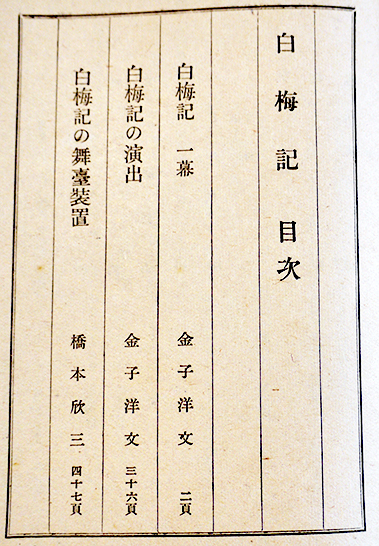 白梅記 目次
白梅記 一幕 金子洋文 二頁
白梅記の演出 金子洋文 三十六頁
白梅記の舞臺装置 橋本欣三 四十七頁